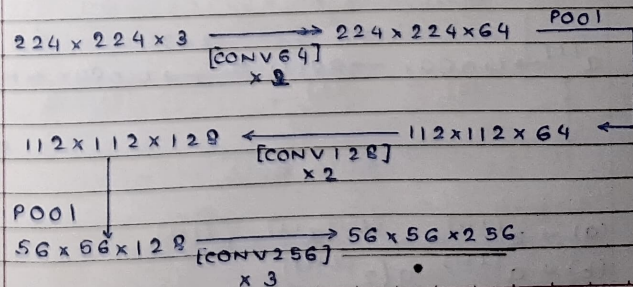 224 x 224 x 3 ⟶ 224 x 224 x 64 POOl
[CONV64]
x 2
112 x 112 x 128 ⟵ 112 x 112 x 64 ←
[CONV128]
x 2
POOl ↓
56 x 56 x 128 ⟶ 56 x 56 x 256
[CONV256]
x 3